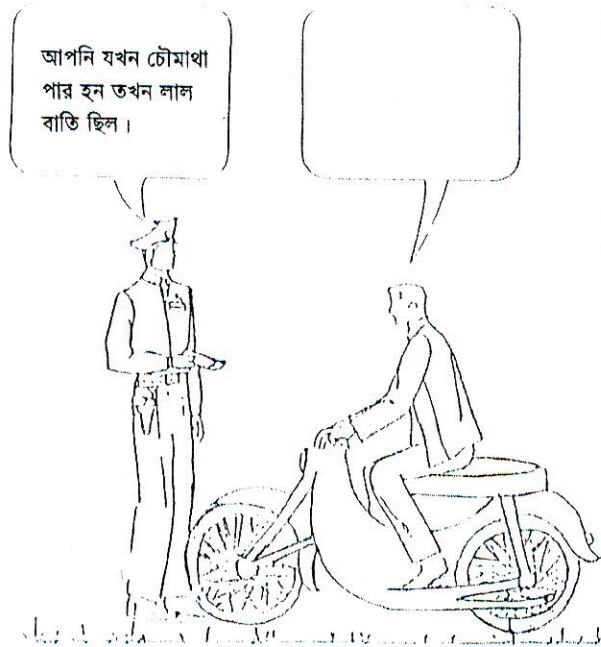 আপনি যখন চৌমাথা
পার হন তখন লাল
বাতি ছিল।